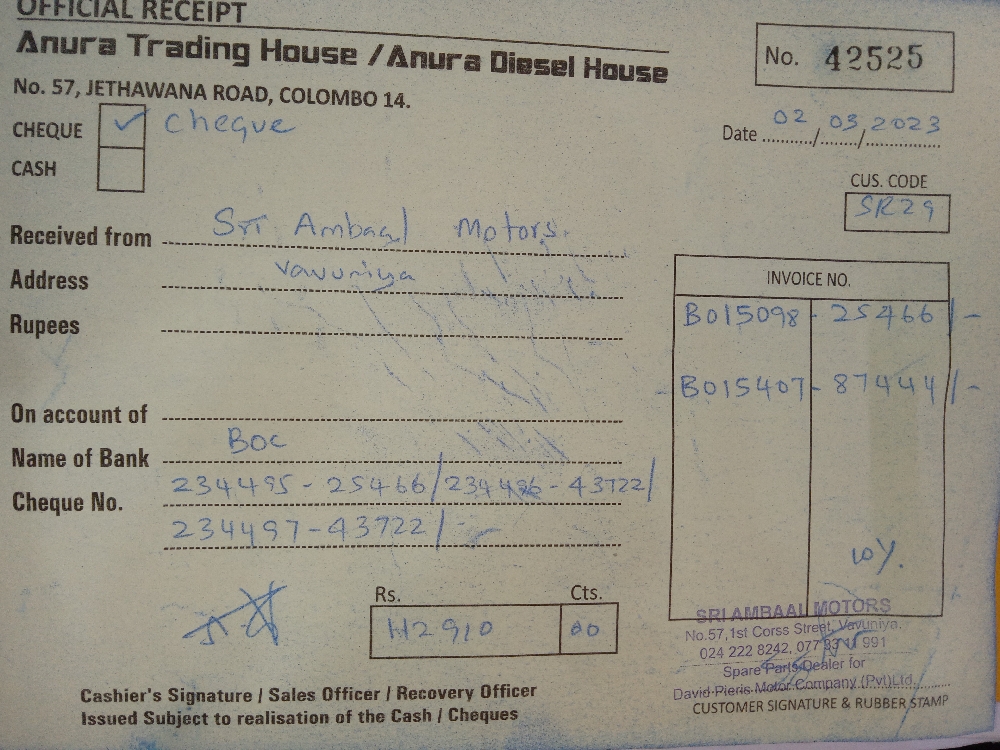 OFFICIAL RECEIPT
Anura Trading House / Anura Diesel House
No. 42525
No. 57, JETHAWANA ROAD, COLOMBO 14.
CHEQUE ✓ cheque
Date 02/03/2023
CASH
CUS. CODE
SR29
Received from Sri Ambaal Motors.
Address Vavuniya
Rupees
INVOICE NO.
B015098 - 25466/-
B015407 - 87444/-
On account of
Name of Bank BOC
Cheque No. 234495 - 25466/234496 - 43722/
234497-43722/-
10%.
Rs. Cts.
112910 00
SRI AMBAAL MOTORS
No.57,1st Corss Street, Vavuniya.
024 222 8242, 077 991
Spare Parts Dealer for
David Pieris Motor Company (Pvt)Ltd.
CUSTOMER SIGNATURE & RUBBER STAMP
Cashier's Signature / Sales Officer / Recovery Officer
Issued Subject to realisation of the Cash / Cheques